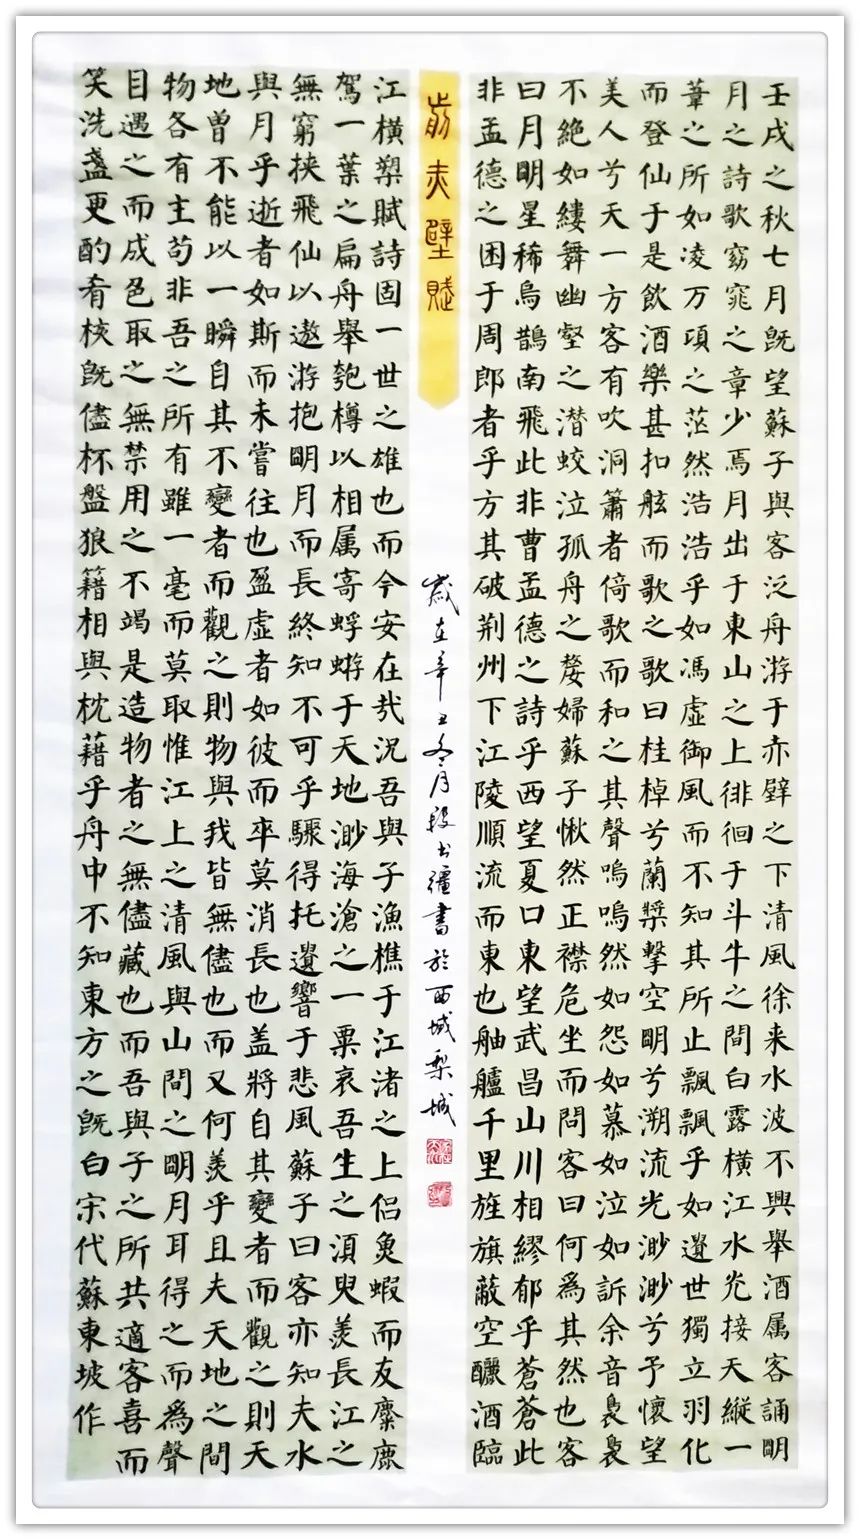 壬戌之秋七月既望蘇子與客泛舟游于赤壁之下清風徐来水波不興舉酒属客誦眀
月之詩歌窈窕之章少焉月出于東山之上徘徊于斗牛之間白露横江水光接天縱一
葦之所如凌万頃之茫然浩浩乎如馮虚御風而不知其所止飄飄乎如遺世獨立羽化
而登仙于是飲酒樂甚扣舷而歌之歌曰桂棹兮蘭槳擊空眀兮溯流光渺渺兮予懷望
美人兮天一方客有吹洞簫者倚歌而和之其聲嗚嗚然如怨如慕如泣如訴余音裊裊
不絶如縷舞幽壑之潜蛟泣孤舟之嫠婦蘇子愀然正襟危坐而問客曰何為其然也客
曰月眀星稀烏鵲南飛此非曹孟德之詩乎西望夏口東望武昌山川相繆郁乎蒼蒼此
非孟德之困于周郎者乎方其破荆州下江陵順流而東也舳艫千里旌旗蔽空釃酒臨
前赤壁賦
歲在辛丑冬月段书疆書於西域梨城
江横槊賦詩固一世之雄也而今安在哉況吾與子漁樵于江渚之上侣魚蝦而友麋鹿
駕一葉之扁舟舉匏樽以相属寄蜉蝣于天地渺海滄之一粟哀吾生之須臾羨長江之
無窮挟飛仙以遨游抱眀月而長終知不可乎驟得托遺響于悲風蘇子曰客亦知夫水
與月乎逝者如斯而未嘗往也盈虚者如彼而卒莫消長也盖將自其變者而觀之則天
地曾不能以一瞬自其不變者而觀之則物與我皆無儘也而又何羨乎且夫天地之間
物各有主苟非吾之所有雖一毫而莫取惟江上之清風與山間之眀月耳得之而為聲
目遇之而成色取之無禁用之不竭是造物者之無儘藏也而吾與子之所共適客喜而
笑洗盞更酌肴核既儘杯盤狼籍相與枕藉乎舟中不知東方之既白宋代蘇東坡作